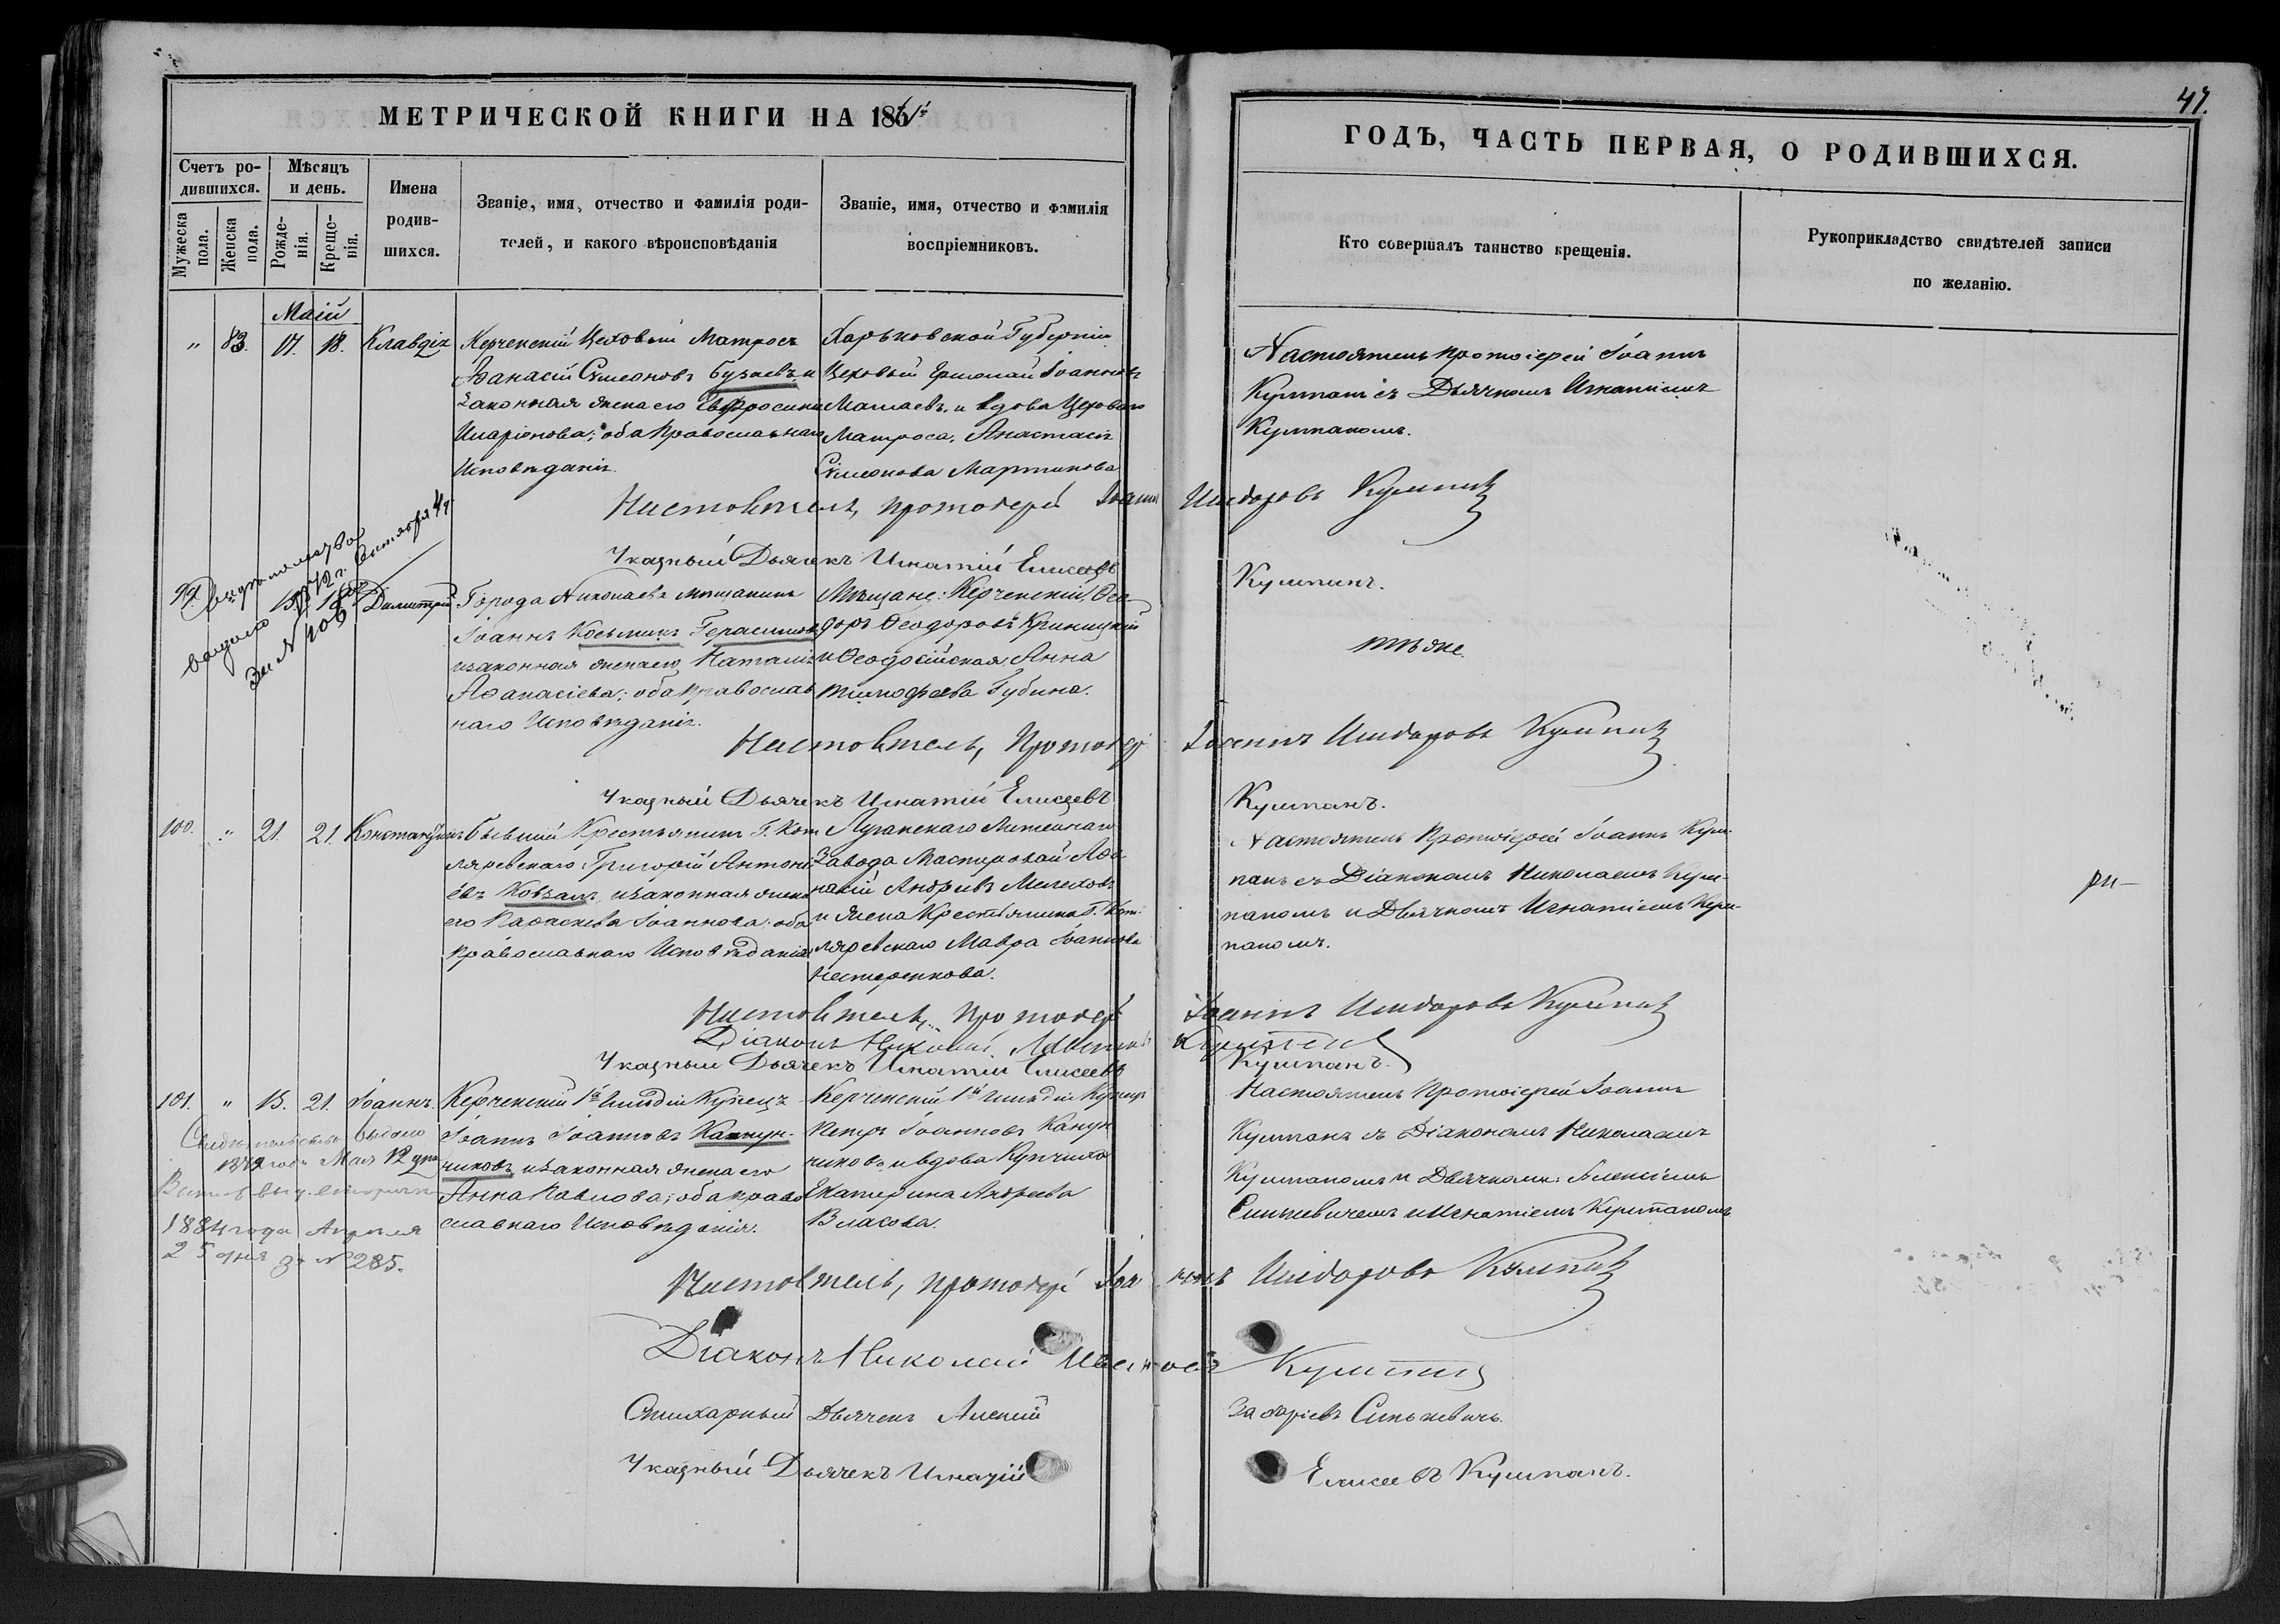 МЕТРИЧЕСКОЙ КНИГИ НА 186
47.
ГОДЪ, ЧАСТЬ ПЕРВАЯ, О РОДИВШИХСЯ.
Счетъ ро-
дившихся.
Мѣсяцъ
и день.
Мужеска
пола.
Женска
пола.
Рожде-
нія.
Креще-
нія.
Имена
родив-
шихся.
Званіе, имя, отчество и фамилія роди-
телей, и какого вѣроисповѣданія
Званіе, имя, отчество и фамилія
воспріемниковъ.
Кто совершалъ таинство крещенія.
Рукоприкладство свидѣтелей записи
по желанію.
Маій
" 83. 17. 18. Клавдія
Керченскій Цеховый Матросъ
Аѳанасій Симеоновъ Бузаевъ и
Законная жена его Евфросинія
Иларіонова; оба Православнаго
Исповѣданія.
Харьковской Губерніи
Цеховый Ермолай Іоанновъ
Мамаевъ, и вдова Цеховаго
Матроса, Анастасія
Симеонова Мартинова
Настоятель Протоіерей Іоаннъ
Кумпанъ съ Дьячкомъ Игнатіемъ
Кумпаномъ.
Настоятель, протоіерей Іоаннъ Исидоровъ Кумпанъ
Указный Дьячекъ Игнатій Елисеевъ Кумпанъ.
99. 15. 18. Димитрій
Свидѣтельство
выдано сентября 4
за № 106
Города Николаева мѣщанинъ
Іоаннъ Косьминъ Герасимовъ
и законная жена его, Наталія
Аѳанасіева; оба Православ
наго Исповѣданія.
Мѣщане: Керченскій, Ѳео
доръ Ѳеодоровъ Криницкій
и Ѳеодосійская, Анна
Тимофеева Губина.
тѣже.
Настоятель, Протоіерей Іоаннъ Исидоровъ Кумпанъ
Указный Дьячекъ Игнатій Елисеевъ Кумпанъ.
100. " 21. 21. Константинъ
Бывшій Крестьянинъ Г. Кот
ляревскаго Григорій Антоні
евъ Ковзанъ, и законная жена
его Параскева Іоаннова; оба
Православнаго Исповѣданія
Луганскаго Литейнаго
Завода Мастеровой Аѳа
насій Андреевъ Мелеховъ
и жена Крестьянина Г. Кот-
ляревскаго Мавра Іоаннова
Нестеренкова.
Настоятель Протоіерей Іоаннъ Кум-
панъ съ Діакономъ Николаемъ Кум-
паномъ и Дьячкомъ Игнатіемъ Кум-
паномъ.
Настоятель, Протоіерей Іоаннъ Исидоровъ Кумпанъ
Діаконъ Николай Ивановъ Кумпанъ
Указный Дьячекъ Игнатій Елисеевъ Кумпанъ.
101. " 15. 21. Іоаннъ.
Свидѣтельство выдано
1879 года Мая 12 дня
1884 года Апрѣля
25 дня за № 285.
Керченскій 1й Гильдіи Купецъ
Іоаннъ Іоанновъ Канун-
никовъ и законная жена его
Анна Павлова; оба право
славнаго Исповѣданія.
Керченскій 1й Гильдіи Купецъ
Петръ Іоанновъ Канун
никовъ и вдова Купчиха
Екатерина Андреева
Власова.
Настоятель Протоіерей Іоаннъ
Кумпанъ съ Діакономъ Николаемъ
Кумпаномъ и Дьячками: Алексіемъ
Синькевичемъ и Игнатіемъ Кумпаномъ
Настоятель, протоіерей Іоаннъ Исидоровъ Кумпанъ
Діаконъ Николай Ивановъ Кумпанъ
Стихарный Дьячекъ Алексій Захаріевъ Синькевичъ.
Указный Дьячекъ Игнатій Елисеевъ Кумпанъ.